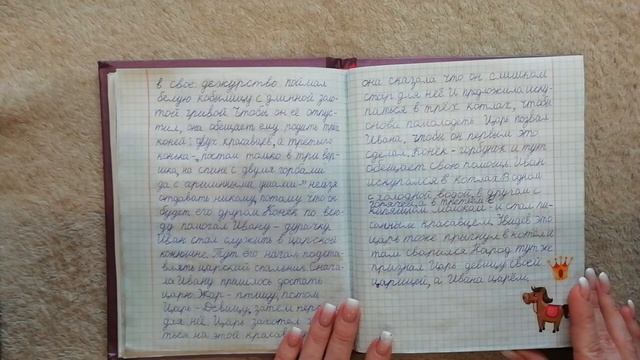 в своё дежурство поймал
белую кобылицу с длинной золо-
той гривой. Чтобы он её отпус-
тил, она обещает ему родить трёх
коней: двух красавцев, а третьего
конька -, ростом только в три вер-
шка, на спине с двумя горбами
да с аршинными ушами-" нельзя
отдавать никому, потому что он
будет его другом. Конёк по всю-
ду помогал Ивану - дурачку.
Иван стал служить в царской
конюшне. Тут его начал подста-
влять царский спальник. Снача-
ла Ивану пришлось достать
царю Жар - птицу, потом
Царь - Девицу, затем пер
для неё. Царь захотел
ться на этой краса
она сказала что он слишком
стар для неё. И предложила иску-
паться в трёх котлах, чтобы
снова помолодеть. Царь позвал
Ивана, чтобы он первым это
сделал. Конёк - горбунок и тут
обещает свою помощь. Иван
искупался в котлах: в одном
с холодной водой, в другом с
горячей, а в третьем с
кипящим молоком - и стал пи-
санным красавцем. Увидев это
царь тоже прыгнул в котёл и
там сварился. Народ тут же
признал Царь девицу своей
царицей, а Ивана царём.